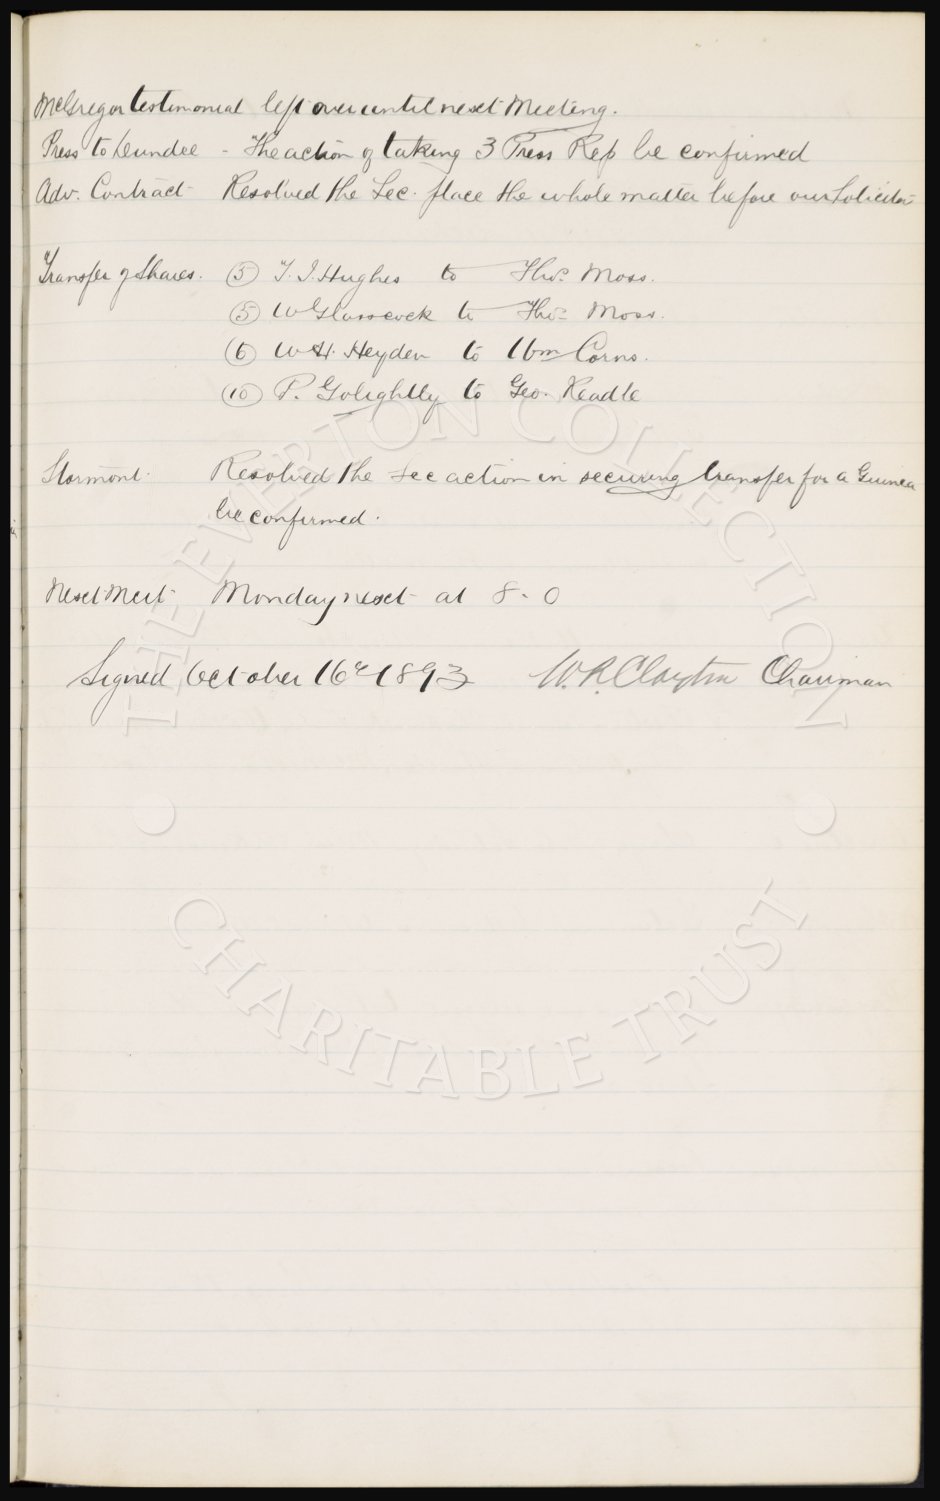 McGregor testimonial left over until next Meeting.
Press to Dundee - The action of taking 3 Press Rep be confirmed
Adv. Contract Resolved the Sec. place the whole matter before our Solicitor
Transfer of Shares. (5) T. J. Hughes to Thos. Moss.
(5) W Glasscock to Thos. Moss.
(6) W H. Heyden to Wm Corns.
(10) P. Golightly to Geo.
Stormont. Resolved the Sec action in securing transfer for a Guinea
be confirmed.
Next Meet. Monday next at 8-0
Signed October 16th 1893 W. R. Clayton Chairman
THE EVERTON COLLECTION
CHARITABLE TRUST